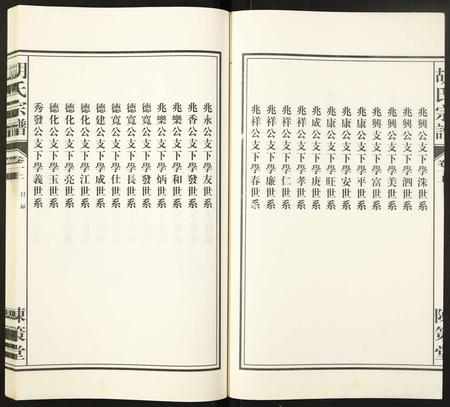 胡氏宗譜
兆興公支下學洙世系
兆興公支下學泗世系
兆興公支下學美世系
兆興支支下學富世系
兆康公支下學平世系
兆康公支下學安世系
兆康公支下學旺世系
兆成公支下學庚世系
兆祥公支下學孝世系
兆祥公支下學仁世系
兆祥公支下學廉世系
兆祥公支下學春世系
兆永公支下學友世系
兆香公支下學發世系
兆樂公支下學和世系
兆樂公支下學炳世系
德寬公支下學發世系
德寬公支下學長世系
德寬公支下學仕世系
德建公支下學成世系
德化公支下學江世系
德化公支下學亮世系
德化公支下學玉世系
秀發公支下學義世系
胡氏宗譜
卷
目録
陳策堂